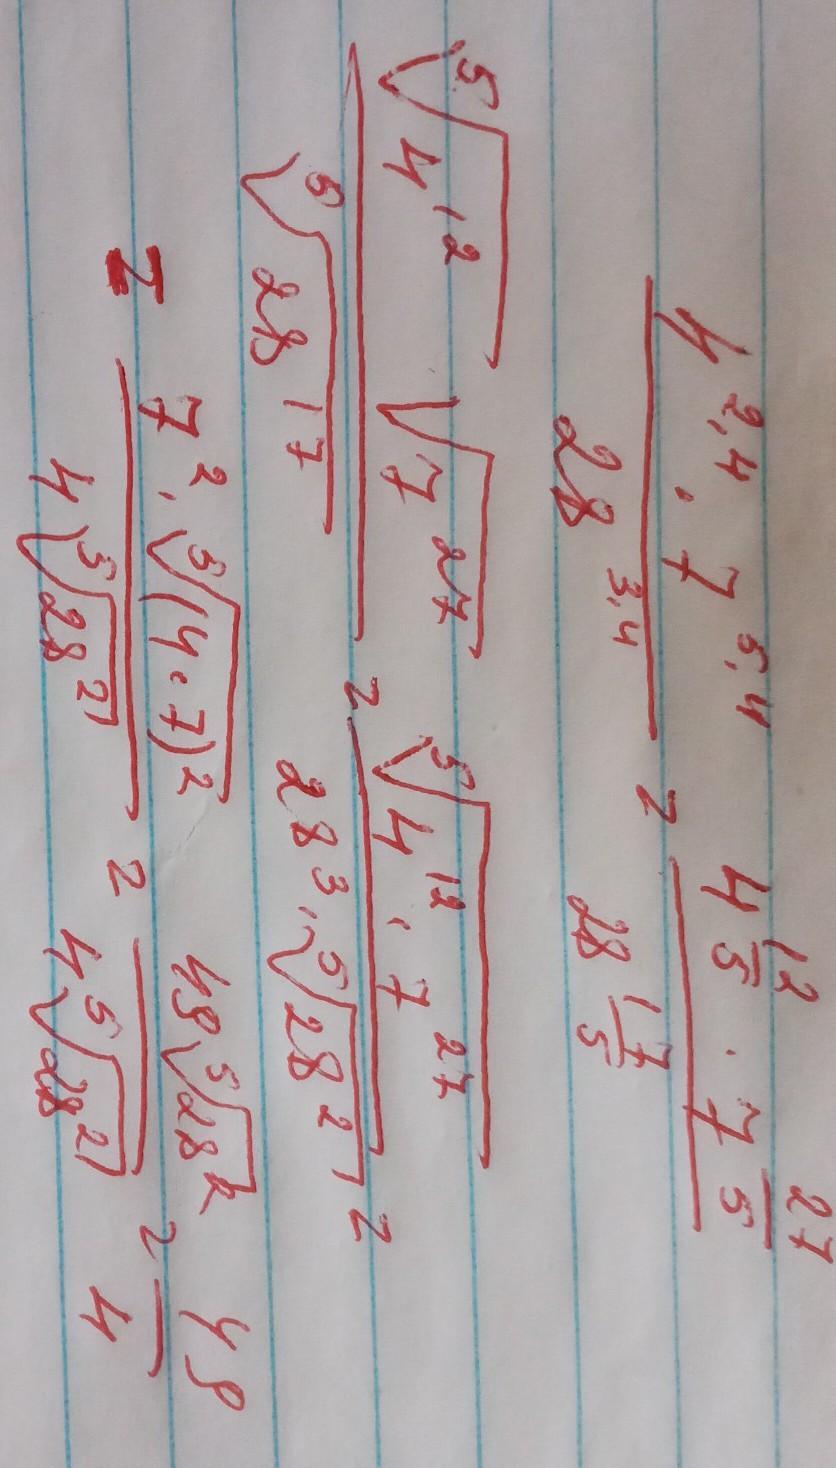 4^{2,4} · 7^{5,4} / 28^{3,4} = 4^{12/5} · 7^{27/5} / 28^{17/5}
\sqrt[5]{4^{12}} \sqrt{7^{27}} / \sqrt[5]{28^{17}} = \sqrt[5]{4^{12} · 7^{27}} / 28^3 · \sqrt[5]{28^2} =
= 7^2 · \sqrt[5]{(4·7)^2} / 4\sqrt[5]{28^2} = 49\sqrt[5]{28^2} / 4\sqrt[5]{28^2} = 49/4